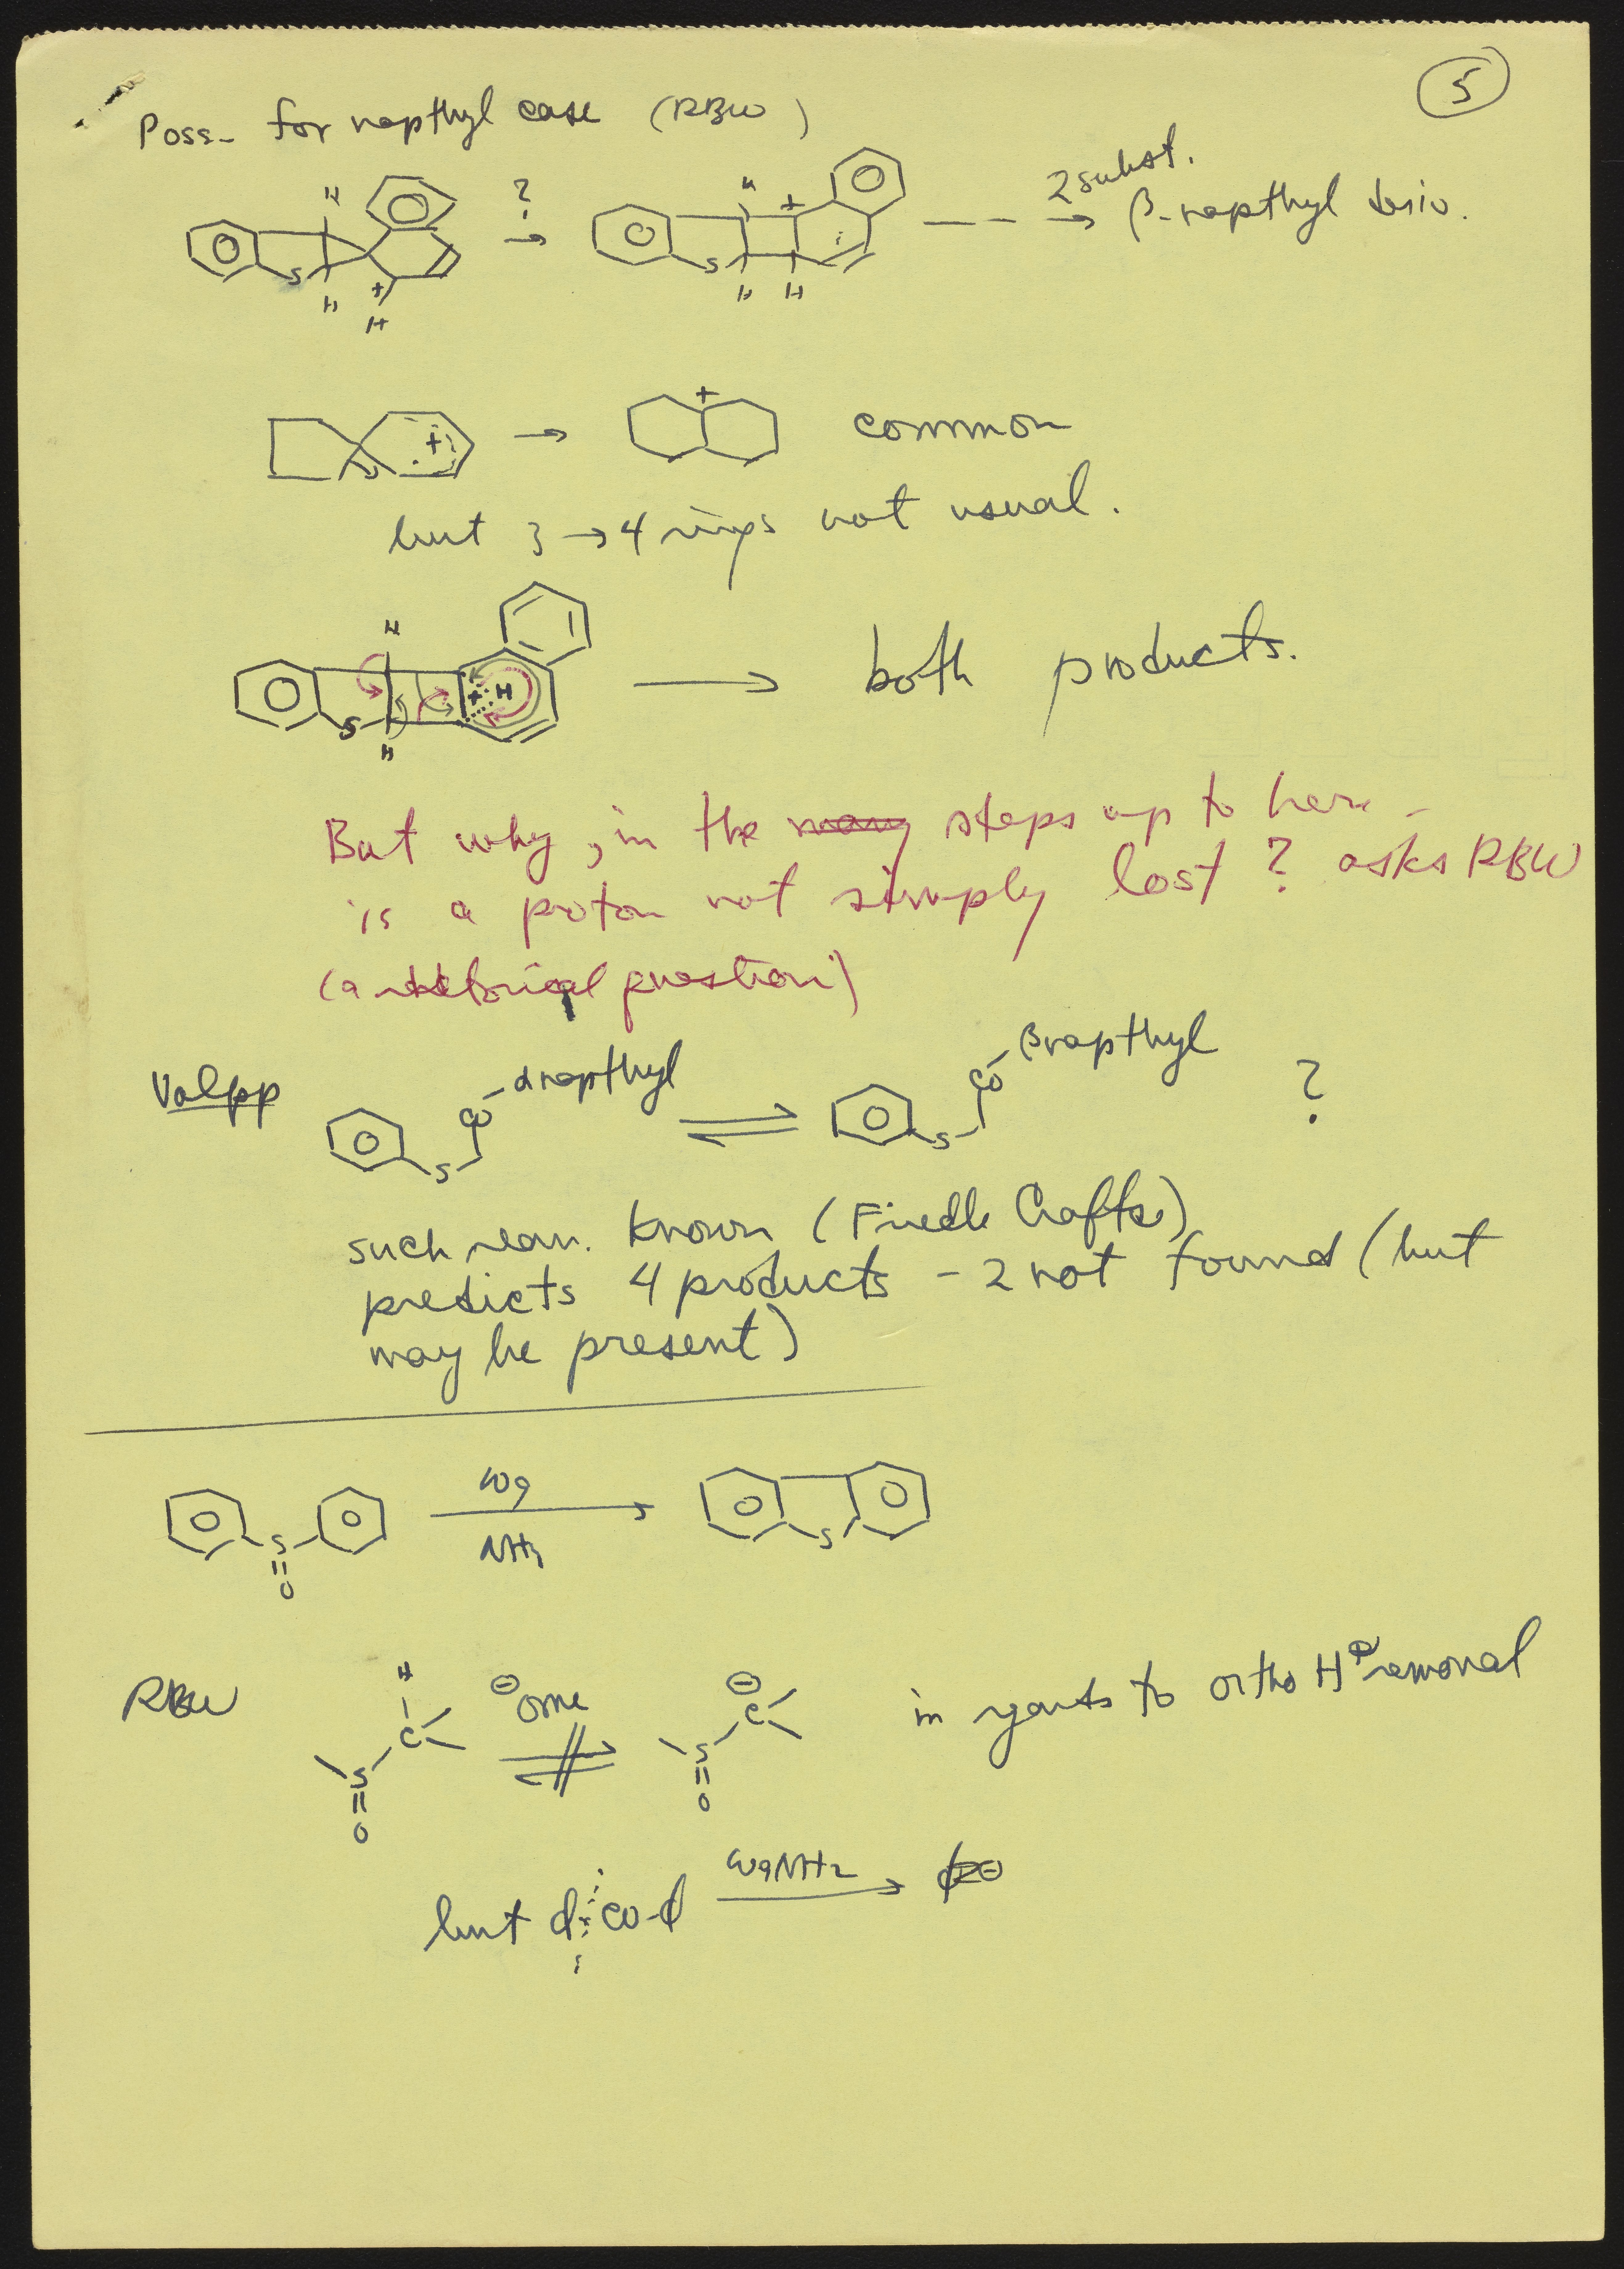 5
Poss- for napthyl case (RBW)
H H ? H + 2 subst.
S S β-napthyl deriv.
H + H H H
+ + common
but 3 → 4 rings not usual.
H
+ H both products.
S
H
But why, in the many steps up to here -
is a proton not simply lost? asks RBW
(a rhetorical question)
Volpp CO - αnapthyl CO - βnapthyl ?
S S
such rearr. known (Friedle Crafts)
predicts 4 products - 2 not found (but
may be present)
NH3
S S
O
RBW H ⊖OMe ⊖ in regards to ortho H⊕ removal
C C
S S
O O
but ϕ CO-ϕ NH2